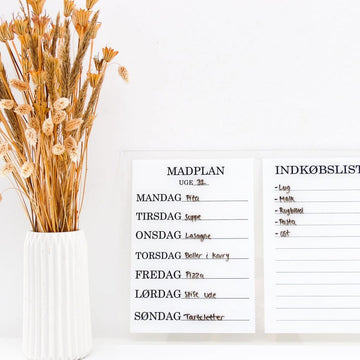 MADPLAN
UGE 32
MANDAG Pita
TIRSDAG Suppe
ONSDAG Lasagne
TORSDAG Boller i karry
FREDAG Pizza
LØRDAG Spise ude
SØNDAG Tarteletter
INDKØBSLIST
- Løg
- Mælk
- Rugbrød
- Pasta
- Ost